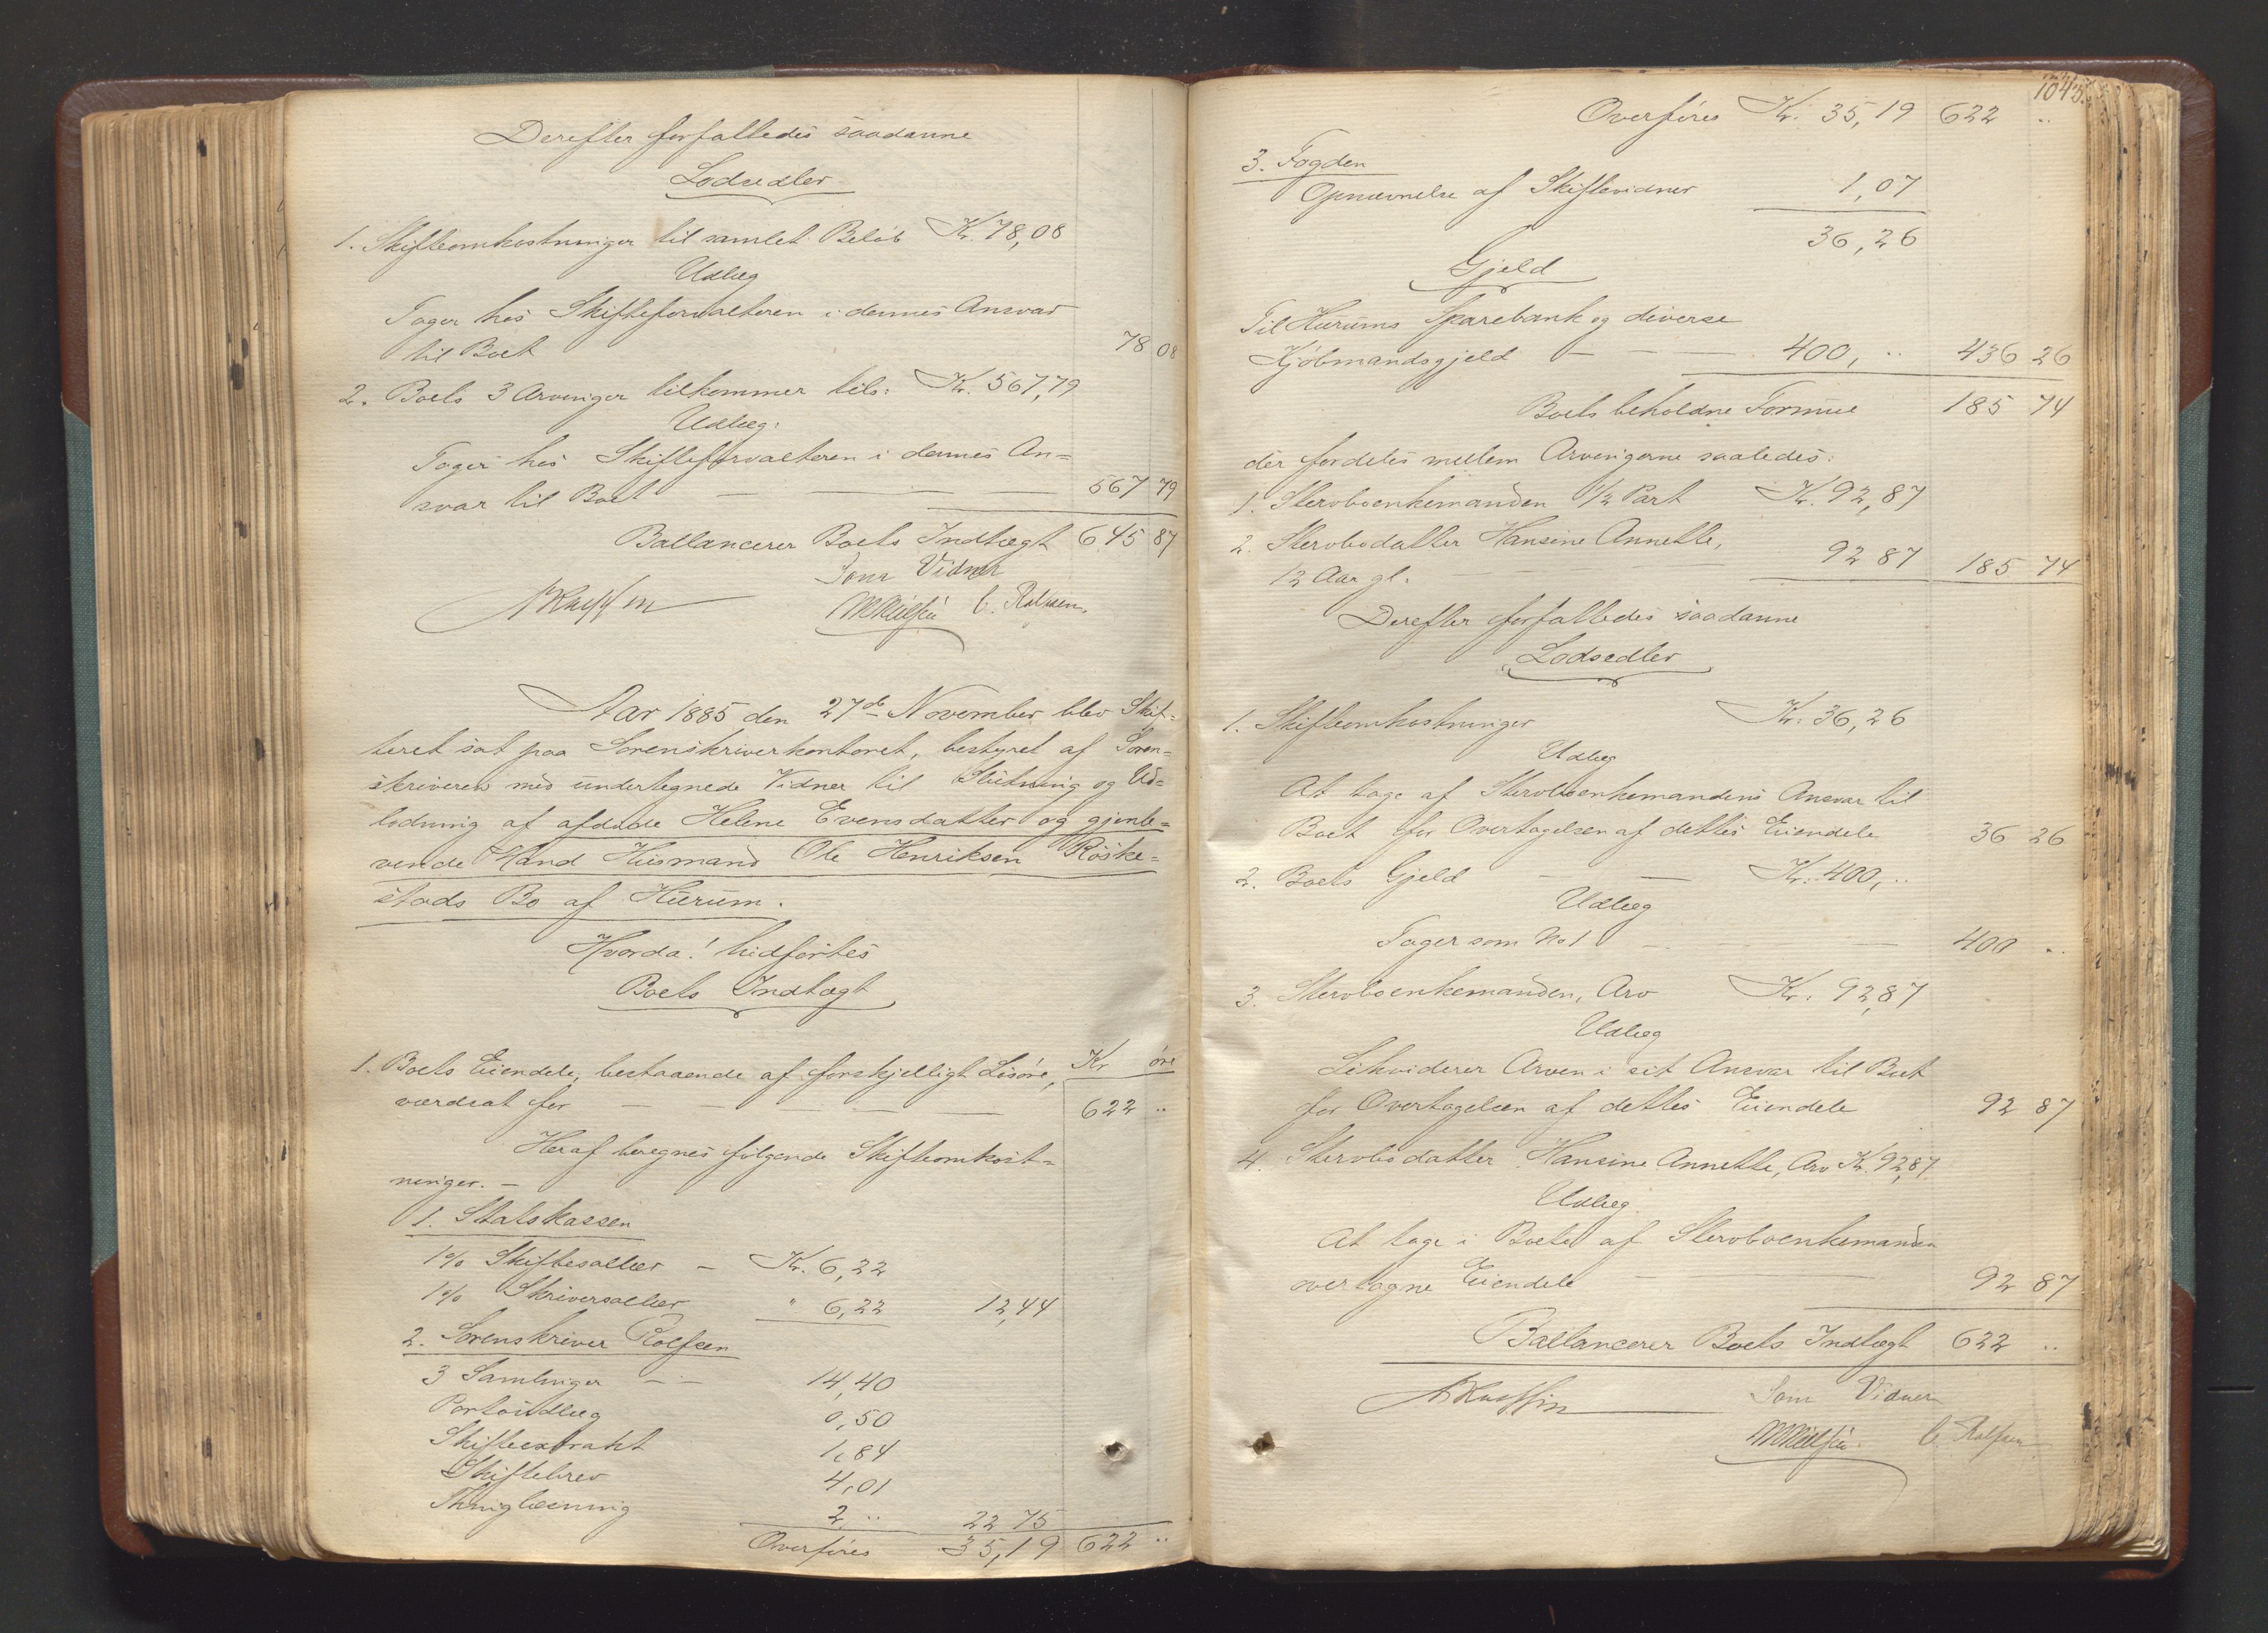 Derefter forfattedes saadanne
Lodsedler
1. Skifteomkostninger til samlet Beløb Kr. 78,08
Udlæg
Tages hos Skifteforvalteren i dennes Ansvar
til Boet 78 08
2. Boets 3 Arvinger tilkommer tils: Kr. 567,79
Udlæg:
Tages hos Skifteforvalteren i dennes An=
svar til Boet — — — — 567 79
Ballancerer Boets Indtægt 645 87
Som Vidner
C. Rolfsen.
Aar 1885 den 27de November blev Skif=
teret sat paa Sorenskriverkontoret, bestyret af Soren=
skriveren med undertegnede Vidner til Slutning og Ud=
lodning af afdøde Helene Evensdatter og gjenle=
vende Mand Husmand Ole Henriksen Røske=
stads Bo af Hurum.
Hvorda! hidførtes
Boets Indtægt
Kr øre
1. Boets Eiendele, bestaaende af forskjelligt Løsøre,
værdsat for — — — — 622 ..
Heraf beregnes følgende Skifteomkost=
ninger. —
1. Statskassen
1% Skiftesallær — Kr. 6,22
1% Skriversallær " 6,22 12,44
2. Sorenskriver Rolfsen
3 Samlinger — — 14,40
Portoudlæg 0,50
Skifteextrakt 1,84
Skiftebrev 4,01
Thinglæsning 2,.. 22 75
Overføres 35,19 622 ..
1045.
Overføres Kr. 35,19 622 ..
3. Fogden
Opnævnelse af Skiftevidner 1,07
36,26
Gjeld
Til Hurums Sparebank og diverse
Kjøbmandsgjeld — — — 400, .. 436 26
Boets beholdne Formue 185 74
der fordeles mellem Arvingerne saaledes:
1. Sterboenkemanden 1/2 Part Kr. 92,87
2. Sterbodatter Hansine Annette,
12 Aar gl. 92 87 185 74
Derefter forfattedes saadanne
Lodsedler
1. Skifteomkostninger Kr. 36,26
Udlæg
At tage af Sterboenkemandens Ansvar til
Boet for Overtagelsen af dettes Eiendele 36 26
2. Boets Gjeld — — Kr. 400, ..
Udlæg
Tages som No 1 — — 400 ..
3. Sterboenkemanden, Arv Kr. 92,87
Udlæg
Likviderer Arven i sit Ansvar til Boet
for Overtagelsen af dettes Eiendele 92 87
4. Sterbodatter Hansine Annette, Arv Kr. 92,87
Udlæg
At tage i Boets af Sterboenkemanden
overtagne Eiendele — — 92 87
Ballancerer Boets Indtægt 622 ..
Som Vidner
C. Rolfsen